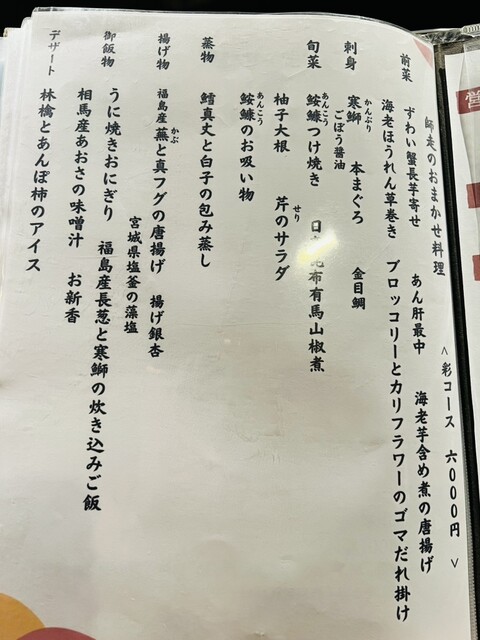 師走のおまかせ料理 <彩コース 六000円>
前菜 ずわい蟹長芋寄せ あん肝最中 海老芋含め煮の唐揚げ
海老ほうれん草巻き ブロッコリーとカリフラワーのゴマだれ掛け
刺身 寒鰤 本まぐろ 金目鯛
かんぶり
ごぼう醤油
旬菜 鮟鱇つけ焼き 昆布有馬山椒煮
あんこう
柚子大根 芹のサラダ
せり
鮟鱇のお吸い物
あんこう
蒸物 鱈真丈と白子の包み蒸し
揚げ物 福島産蕪と真フグの唐揚げ 揚げ銀杏
かぶ
宮城県塩釜の藻塩
御飯物 うに焼きおにぎり 福島産長葱と寒鰤の炊き込みご飯
相馬産あおさの味噌汁 お新香
デザート 林檎とあんぽ柿のアイス